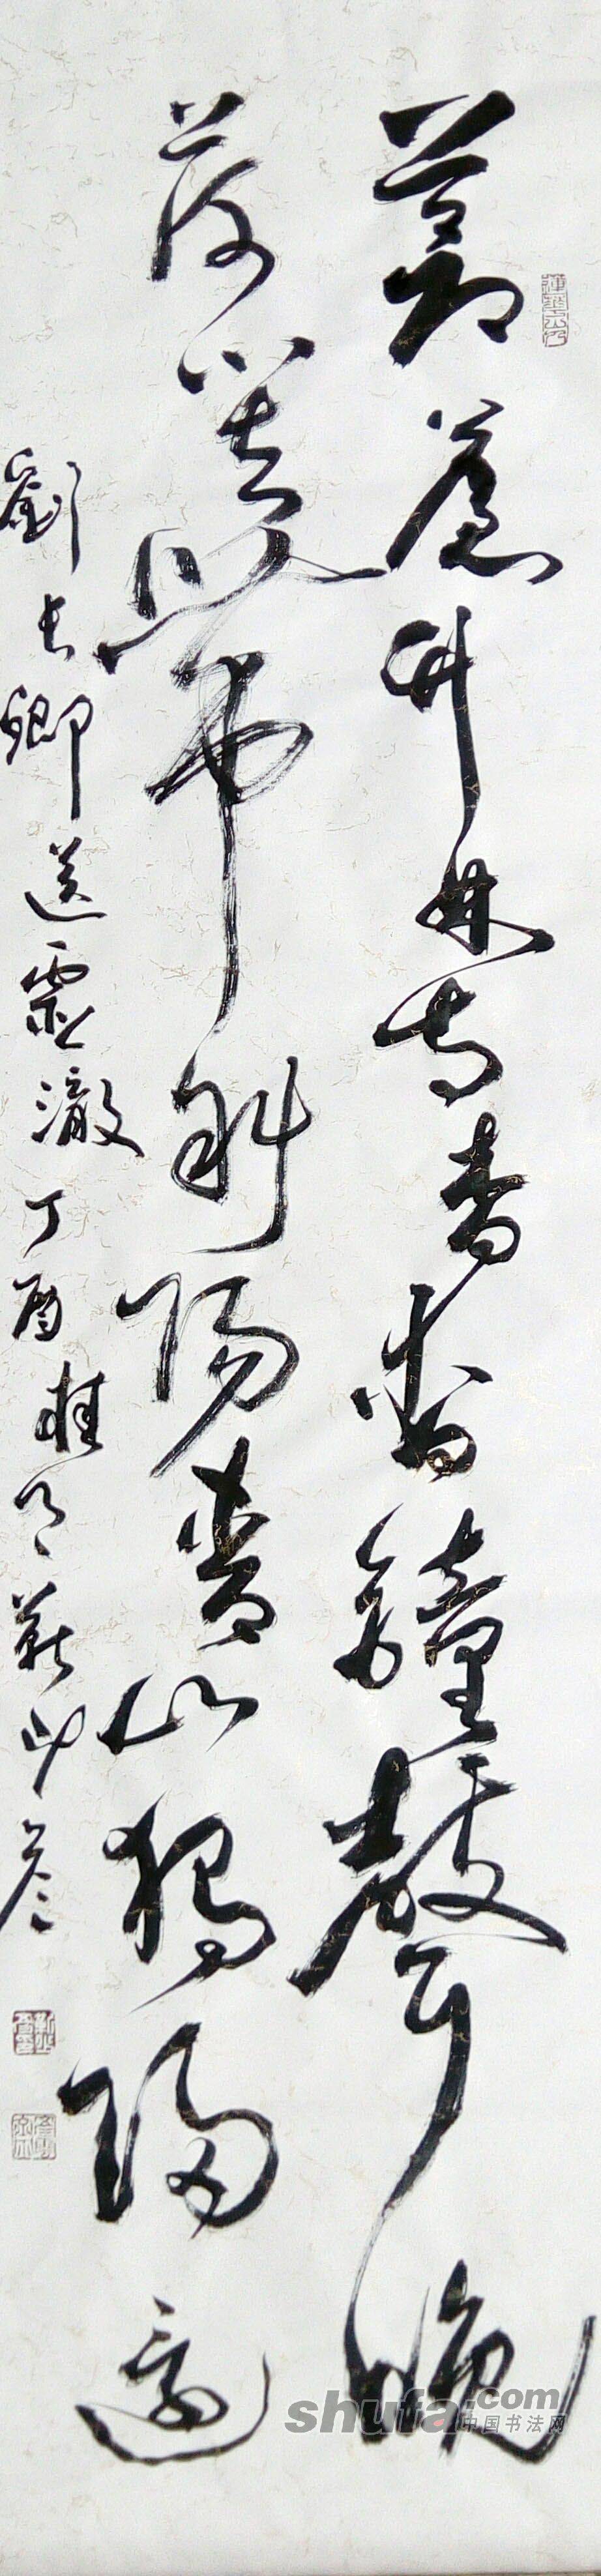 蒼蒼竹林寺杳杳鐘聲晚
荷笠帶斜陽青山獨歸遠
劉長卿送靈澈丁酉桂月蘇
shufa.com
中国书法网